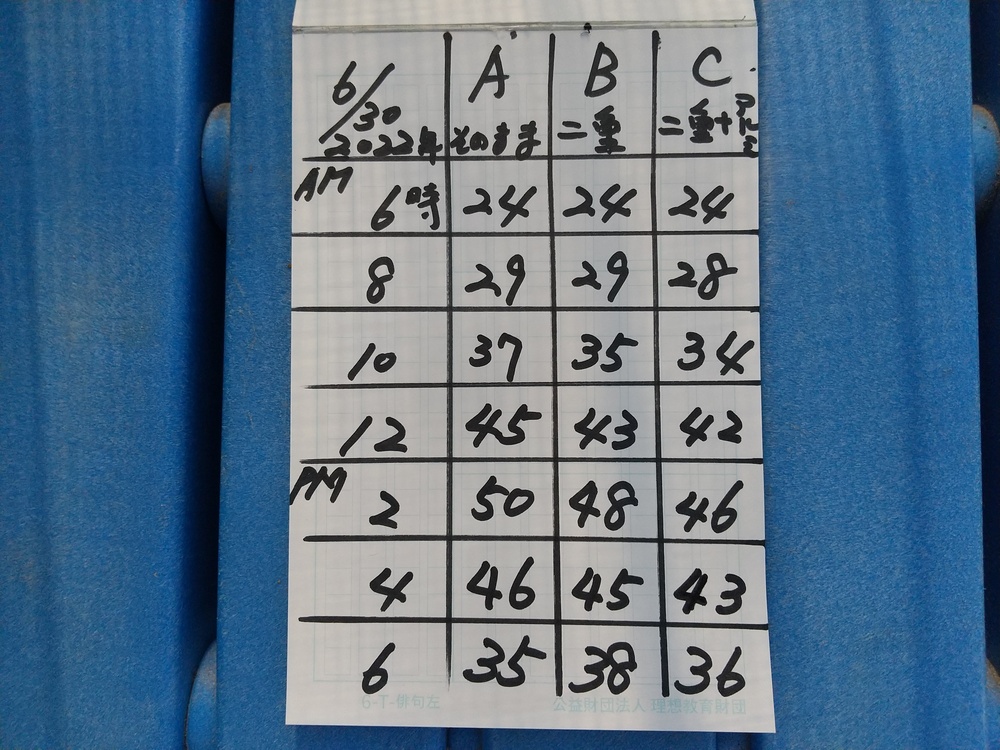 6/30 A B C
2022年 そのまま 二重 二重+アルミ
AM
6時 24 24 24
8 29 29 28
10 37 35 34
12 45 43 42
PM
2 50 48 46
4 46 45 43
6 35 38 36
6-T-俳句左 公益財団法人 理想教育財団